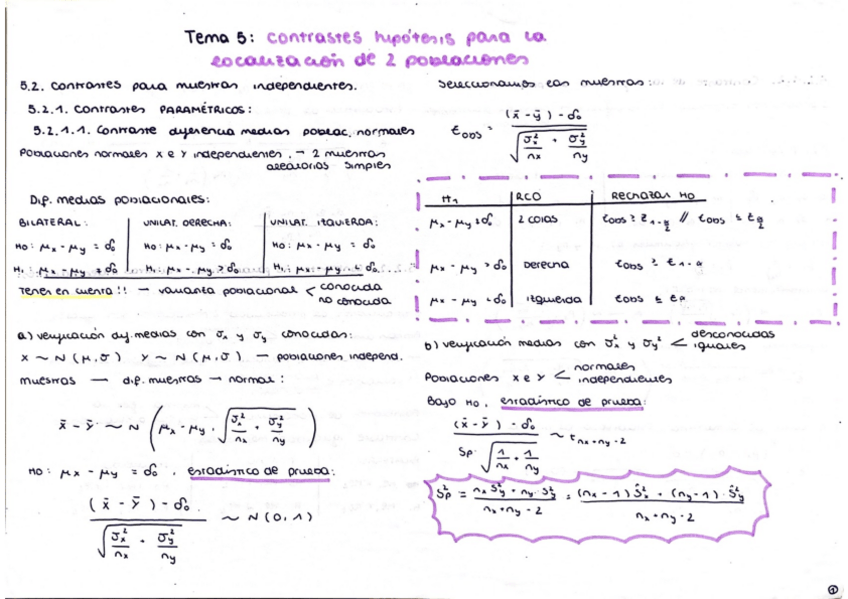 Tema 5: contrastes hipótesis para la
localización de 2 poblaciones
5.2. Contrastes para muestras independientes.
5.2.1. Contrastes PARAMÉTRICOS:
5.2.1.1. Contraste diferencia medias poblac. normales
Poblaciones normales X e Y independientes. → 2 muestras
aleatorias simples
Dif. medias poblacionales:
BILATERAL:
H0: μx - μy = δ0
H1: μx - μy ≠ δ0
UNILAT. DERECHA:
H0: μx - μy = δ0
H1: μx - μy > δ0
UNILAT. IZQUIERDA:
H0: μx - μy = δ0
H1: μx - μy < δ0
Tener en cuenta!! → varianza poblacional < conocida
no conocida
a) verificación dif. medias con σx y σy conocidas:
X ~ N(μ,σ) Y ~ N(μ,σ) — poblaciones independ.
muestras → dif. muestras → normal:
x̄ - ȳ ~ N(μx - μy, √(σx²/nx + σy²/ny))
H0: μx - μy = δ0. estadístico de prueba:
((x̄ - ȳ) - δ0) / √(σx²/nx + σy²/ny) ~ N(0,1)
Seleccionamos las muestras:
tobs = ((x̄ - ȳ) - δ0) / √(σx²/nx + σy²/ny)
H1 | RCO | Rechazar H0
μx - μy ≠ δ0 | 2 colas | tobs ≥ z1-α/2 // tobs ≤ tα/2
μx - μy > δ0 | derecha | tobs ≥ t1-α
μx - μy < δ0 | izquierda | tobs ≤ tα
b) verificación medias con σx² y σy² < desconocidas
iguales
Poblaciones X e Y < normales
independientes
Bajo H0, estadístico de prueba:
((x̄ - ȳ) - δ0) / (Sp · √(1/nx + 1/ny)) ~ tnx+ny-2
Sp² = (nx Sx² + ny · Sy²) / (nx+ny-2) = ((nx-1) Ŝx² + (ny-1) · Ŝy²) / (nx+ny-2)
1